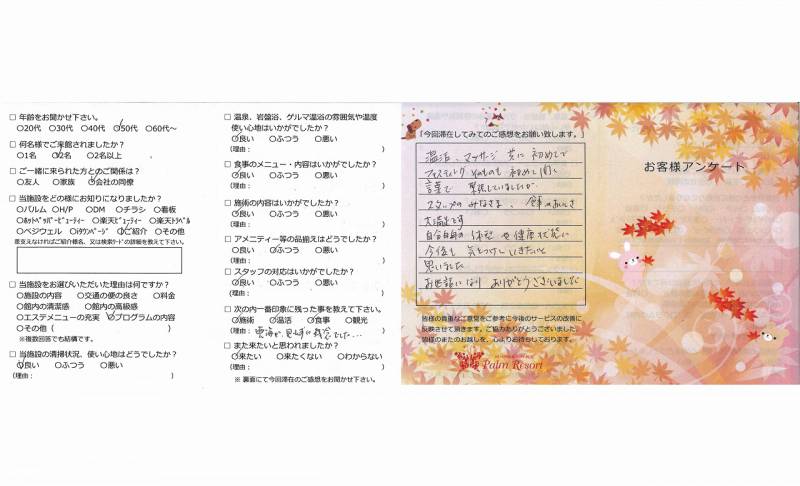 □ 年齢をお聞かせ下さい。
○20代 ○30代 ○40代 ○50代 ○60代～
□ 何名様でご来館されましたか？
○1名 ○2名 ○2名以上
□ ご一緒に来られた方とのご関係は？
○友人 ○家族 ○会社の同僚
□ 当施設をどの様にお知りになりましたか？
○パルム ○H/P ○DM ○チラシ ○看板
○ホットペッパービューティー ○楽天ビューティー ○楽天トラベル
○ベジウェル ○ご紹介 ○その他
□ 当施設をお選びいただいた理由は何ですか？
○施設の内容 ○交通の便の良さ ○料金
○館内の清潔感 ○館内の高級感
○エステメニューの充実 ○プログラムの内容
○その他（ ）
※複数回答でも結構です。
□ 当施設の清掃状況、使い心地はどうでしたか？
○良い ○ふつう ○悪い
(理由： )
□ 温泉、岩盤浴、ゲルマ温浴の雰囲気や温度
使い心地はいかがでしたか？
○良い ○ふつう ○悪い
(理由： )
□ 食事のメニュー・内容はいかがでしたか？
○良い ○ふつう ○悪い
(理由： )
□ 施術の内容はいかがでしたか？
○良い ○ふつう ○悪い
(理由： )
□ アメニティー等の品揃えはどうでしたか？
○良い ○ふつう ○悪い
(理由： )
□ スタッフの対応はいかがでしたか？
○良い ○ふつう ○悪い
(理由： )
□ 次の内一番印象に残った事を教えて下さい。
○施術 ○温活 ○食事 ○観光
(理由：
□ また来たいと思われましたか？
○来たい ○来たくない ○わからない
(理由： )
※ 裏面にて今回滞在のご感想をお聞かせ下さい。
「今回滞在してみてのご感想をお願い致します。」
温活、マッサージ 共に 初めてで
ファスティング そのものも 初めて 聞く
言葉で 緊張していましたが
スタッフの みなさま、食事のおいしさ
大満足です
自分自身の 体型 や 健康状態に
今後も 気をつけていきたいと
思いました
お世話になり ありがとうございました
皆様の貴重なご意見をご参考に今後のサービスの改善に
反映させて頂きます。ご協力ありがとうございました。
皆様のまたのお越しを、心よりお待ちしております。
Palm Resort
お客様アンケート